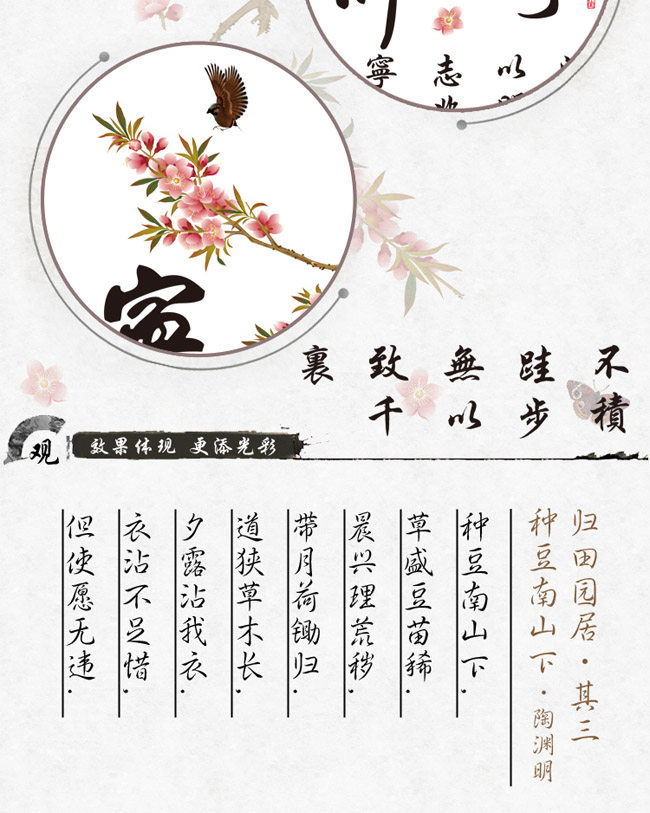 寧
志
以
家
不積
跬步
無以
致千
裏
观
效果体现 更添光彩
归田园居·其三
种豆南山下·陶渊明
种豆南山下,
草盛豆苗稀.
晨兴理荒秽,
带月荷锄归.
道狭草木长,
夕露沾我衣.
衣沾不足惜,
但使愿无违.